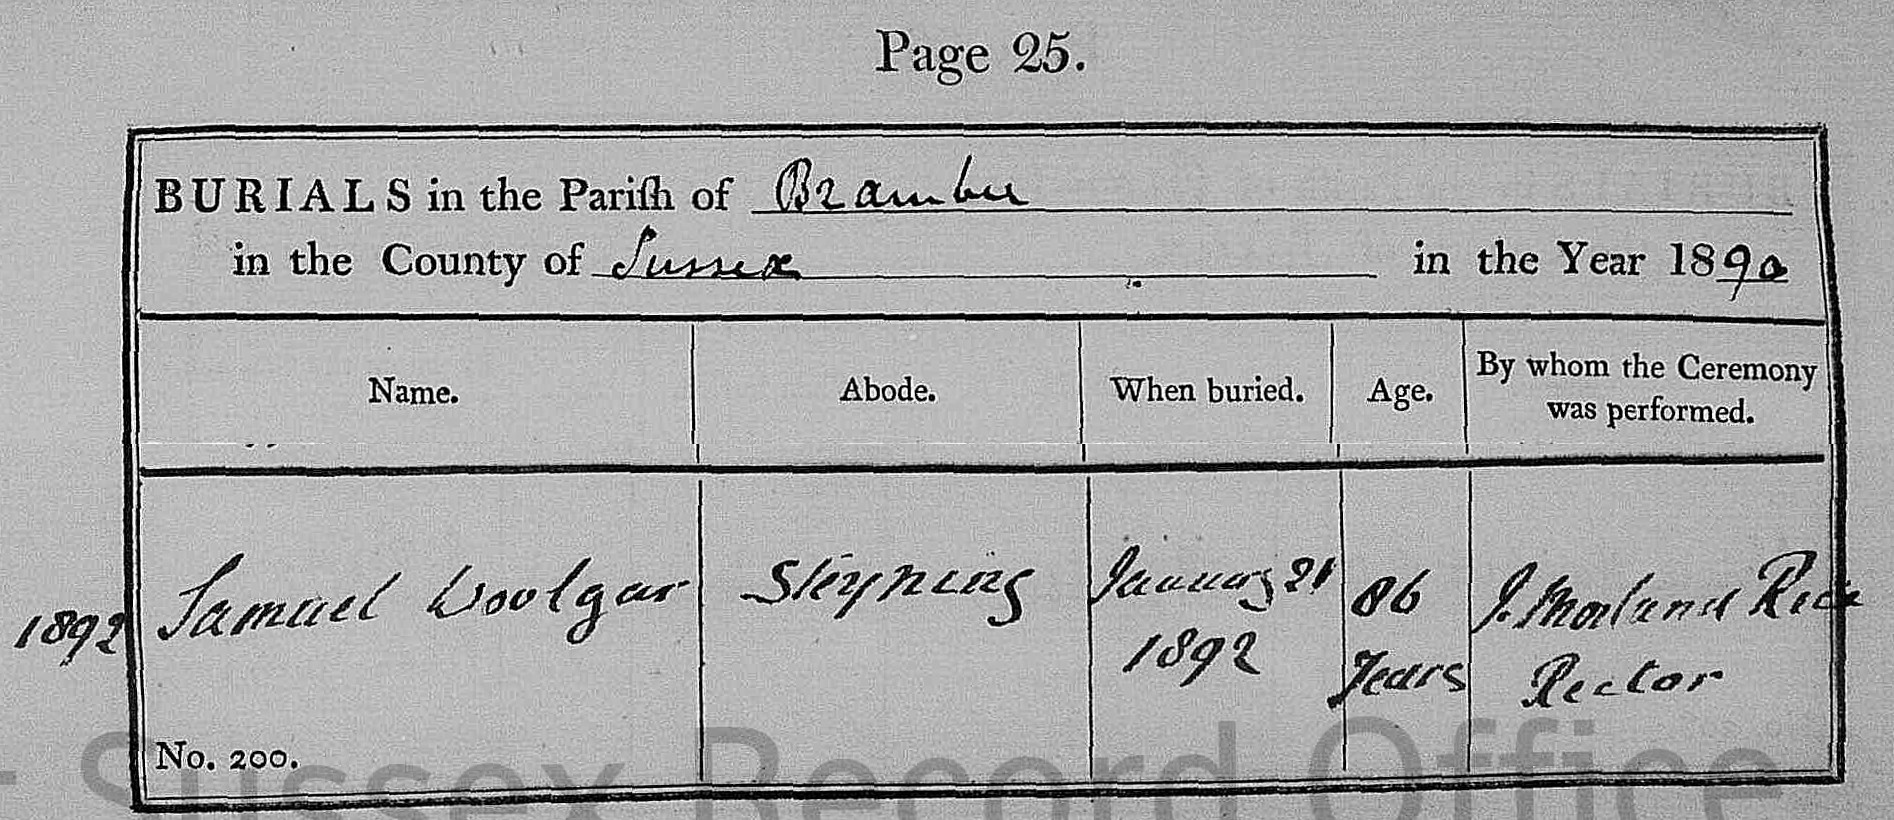 Page 25.
BURIALS in the Pariſh of Bramber
in the County of Sussex in the Year 1890
Name. Abode. When buried. Age. By whom the Ceremony was performed.
1892 Samuel Woolgar Steyning January 21 1892 86 Years J. Morland Rector
No. 200.
Sussex Record Office